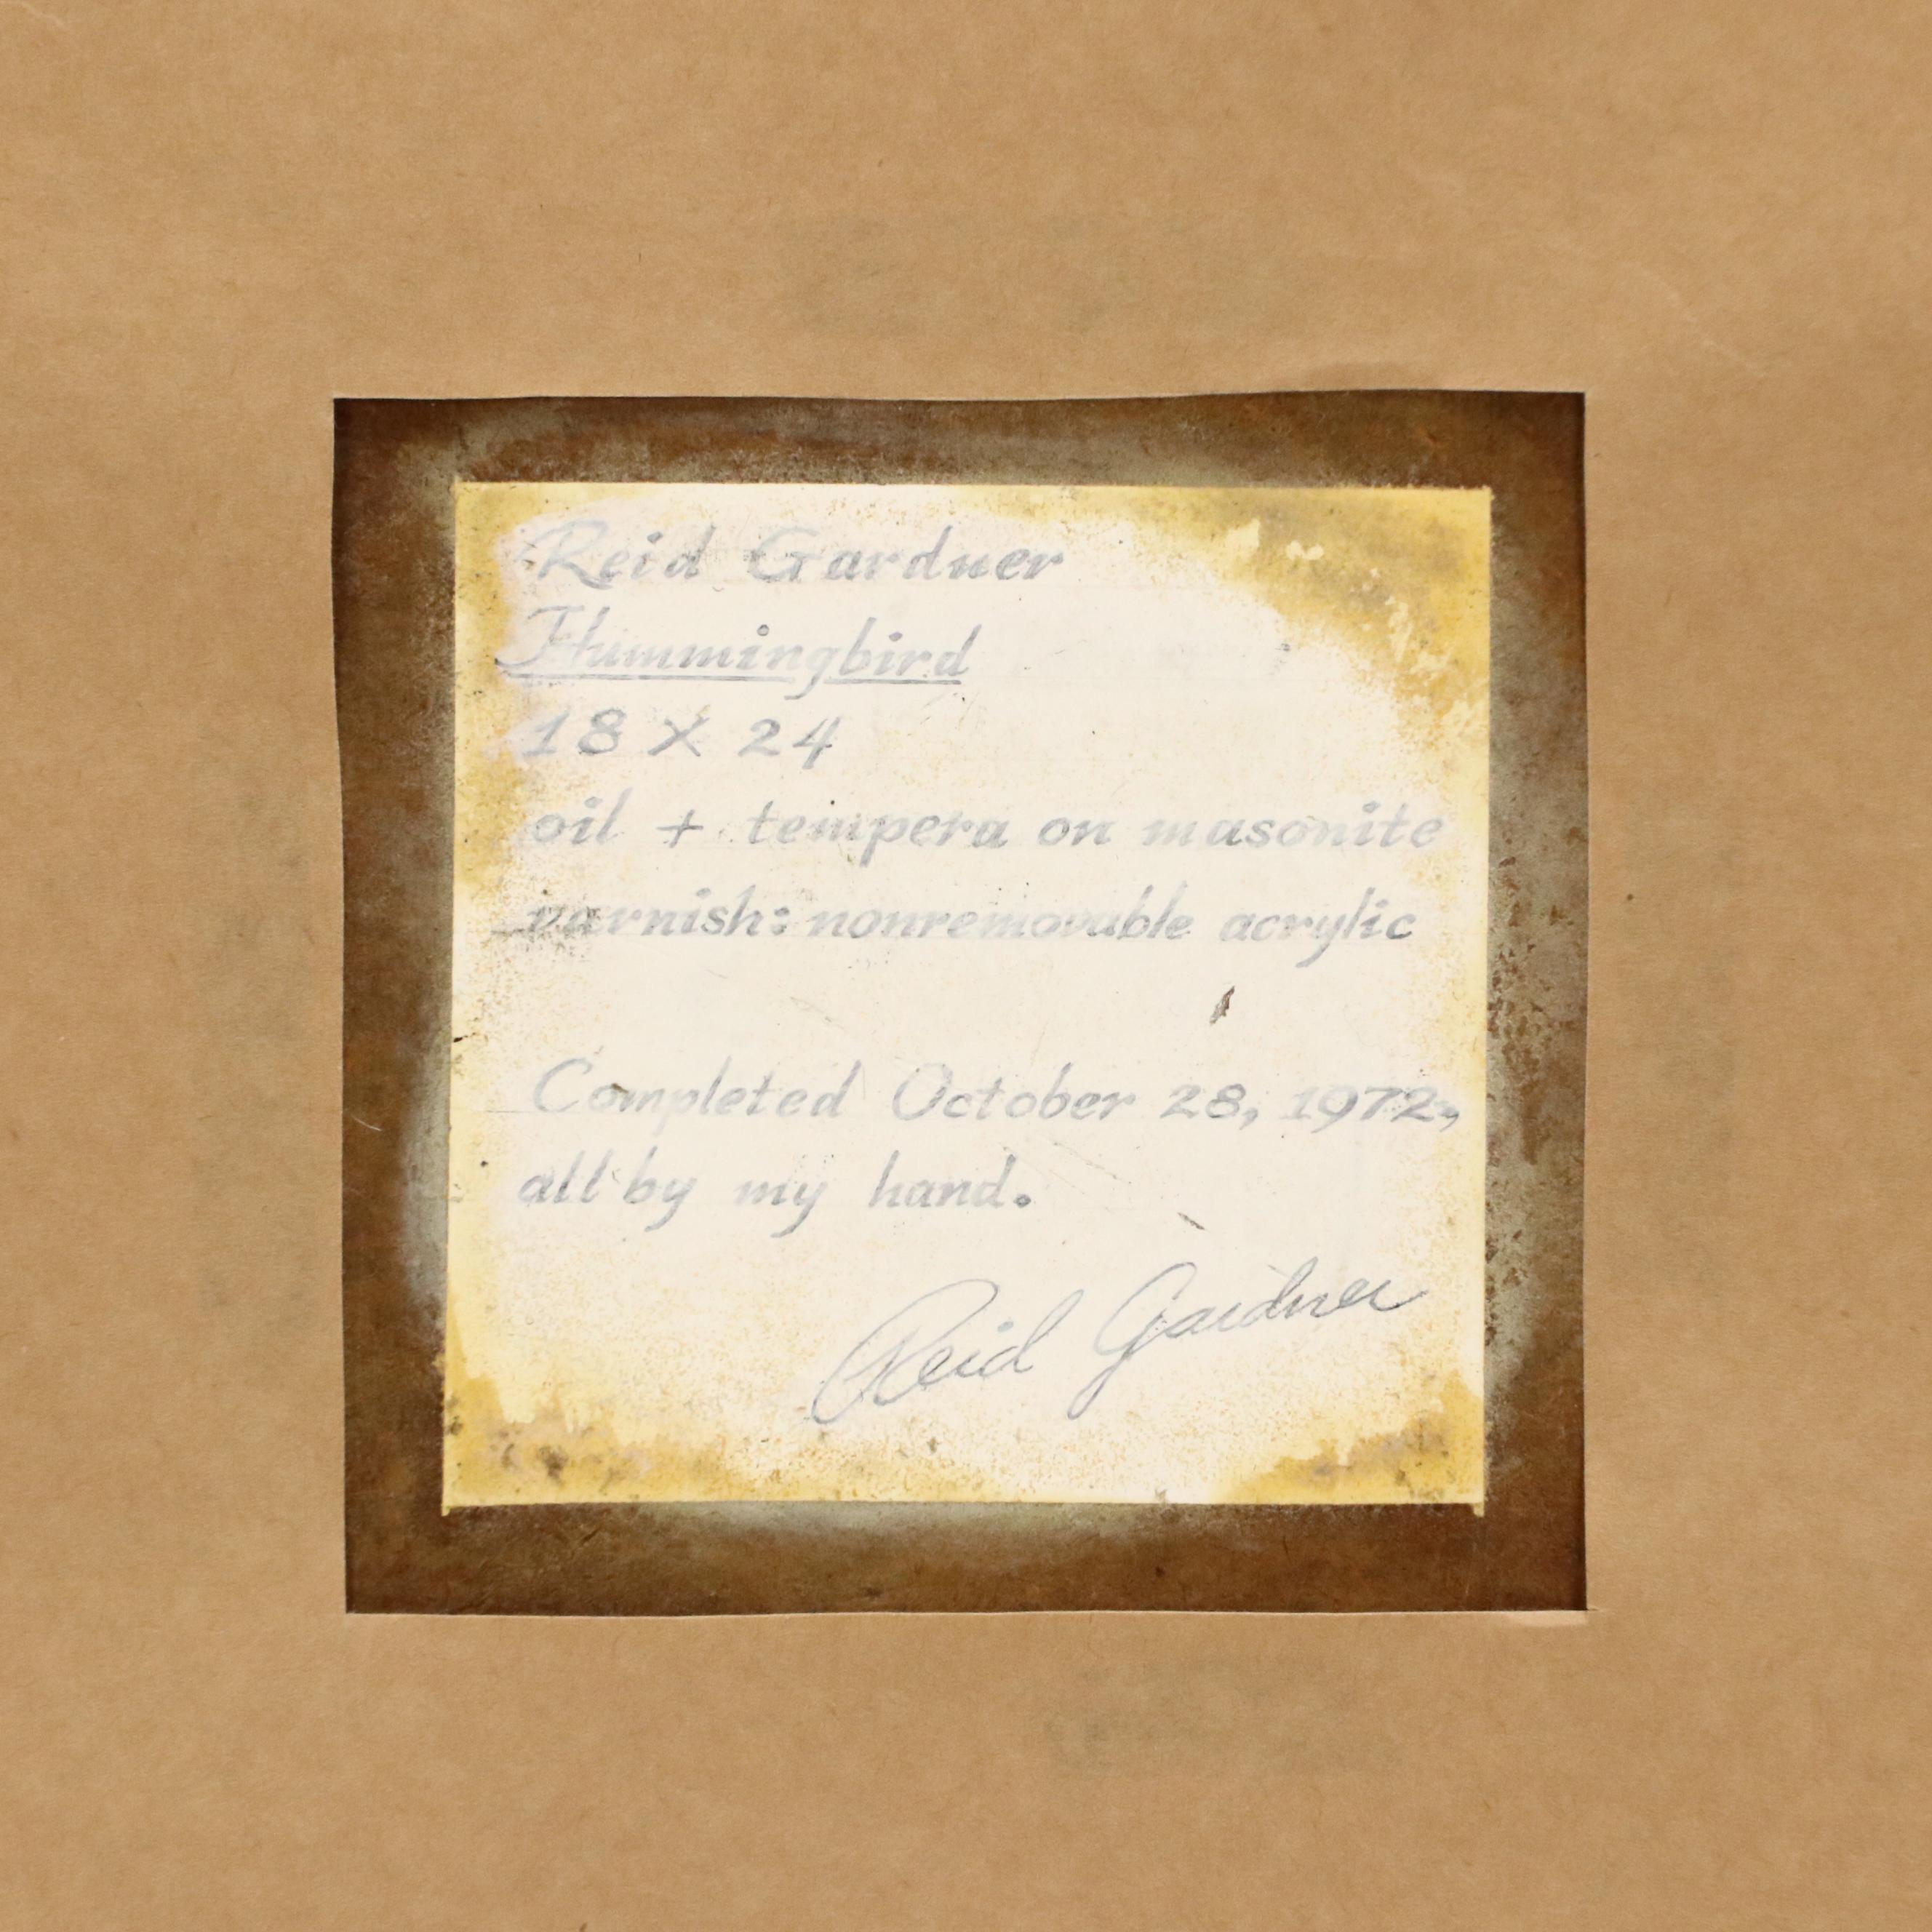 Reid Gardner
Hummingbird
18 X 24
oil + tempera on masonite
varnish: nonremovable acrylic
Completed October 28, 1972,
all by my hand.
Reid Gardner